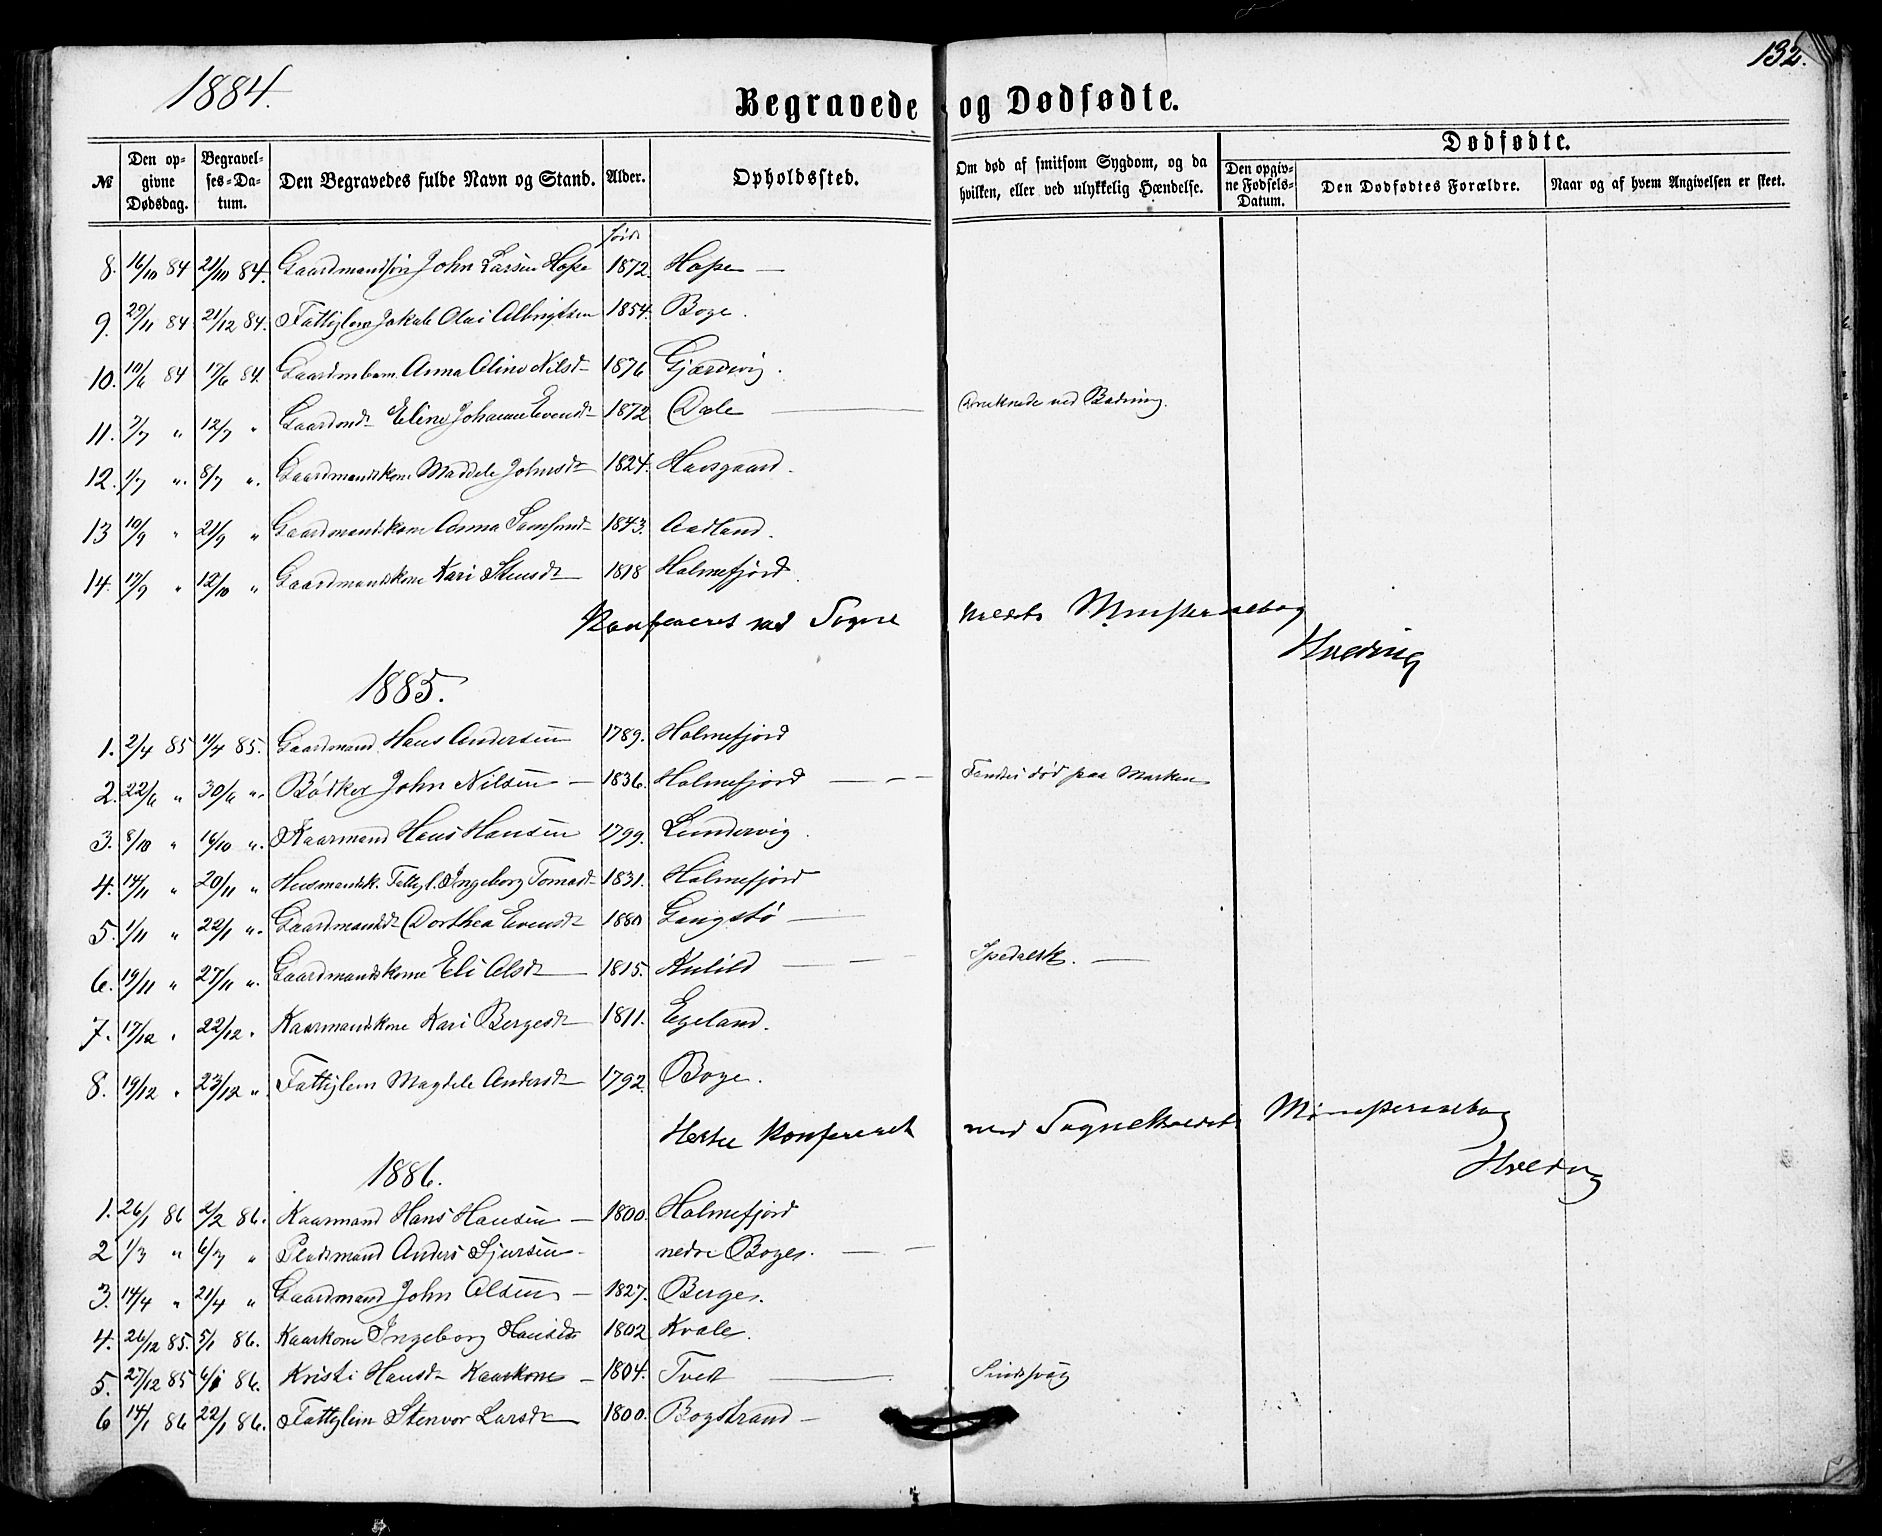 132.
1884.
Begravede og Dødfødte.
№ | Den opgivne Dødsdag. | Begravelses-Datum. | Den Begravedes fulde Navn og Stand. | Alder. | Opholdssted. | Om død af smitsom Sygdom, og da hvilken, eller ved ulykkelig Hændelse. | Dødfødte. Den opgivne Fødsels-Datum. | Den Dødfødtes Forældre. | Naar og af hvem Angivelsen er skeet.
født
8. 16/10 84 21/10 84. Gaardmandssøn John Larsen Hope 1872. Hope —
9. 29/11 84 21/12 84. Fattiglem Jakob Olai Albrigtsen 1854. Boge.
10. 10/6 84 17/6 84. Gaardmbarn Anna Oline Nilsdr 1876 Gjærdvig.
11. 7/7 " 12/7 " Gaardmdr Eline Johanne Evensdr 1872 Dale — Druknede ved Badning.
12. 1/7 ". 8/7 ". Gaardmandskone Maddele Johnsdr 1824. Havsgaard.
13 10/9 " 21/9 " Gaardmandskone Anna 1843. Aadland.
14. 17/9 " 12/10 " Gaardmandskone Kari Stensdr 1818 Holmefjord.
Konfereret med Sognekaldets Ministerialbog
Hveding
1885.
1. 2/4 85 11/4 85. Gaardmand Hans Andersen 1789. Holmefjord
2. 22/6 " 30/6 ". Bødker John Nilsen — 1836. Holmefjord — Fandtes død paa Marken
3. 8/10 " 16/10 ". Kaarmand Hans Hansen 1799. Lundervig.
4. 14/11 " 20/11 " Husmandsk. Fattigl. Ingeborg Tomasdr 1831. Holmefjord
5. 1/11 " 22/1 ". Gaardmandsdr Dorthea Evensdr 1880 Langstø —
6. 19/11 " 27/11 ". Gaardmandskone Eli Olsdr 1815. Kulild — Spedalsk. —
7. 17/12 " 22/12 " Kaarmandskone Kari Bergesdr 1811. Egeland.
8. 19/12 " 23/12 ". Fattiglem Magdele Andersdr 1792. Boge.
Hertil konfereret med Sognekaldets Ministerialbog
Hveding
1886.
1. 26/1 86 2/2 86. Kaarmand Hans Hansen — 1800. Holmefjord
2 1/3 " 6/3 " Pladsmand Anders Sjursen — nedre Boge. —
3. 14/4 " 21/4 " Gaardmand John Olsen — 1827. Berge.
4. 26/12 85. 5/1 86. Kaarkone Ingeborg Hansdr 1802 Kvale.
5. 27/12 85 6/1 86. Kristi Hansdr Kaarkone — 1804. Tvedt — Sindssvag
6 14/1 86 22/1 86. Fattiglem Stenvor Larsdr 1800. Bogstrand —